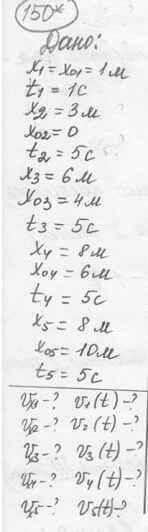 150*
Дано:
x1 = x01 = 1 м
t1 = 1 с
x2 = 3 м
x02 = 0
t2 = 5 с
x3 = 6 м
x03 = 4 м
t3 = 5 с
x4 = 8 м
x04 = 6 м
t4 = 5 с
x5 = 8 м
x05 = 10 м
t5 = 5 с
v1 -? v1(t) -?
v2 -? v2(t) -?
v3 -? v3(t) -?
v4 -? v4(t) -?
v5 -? v5(t) -?